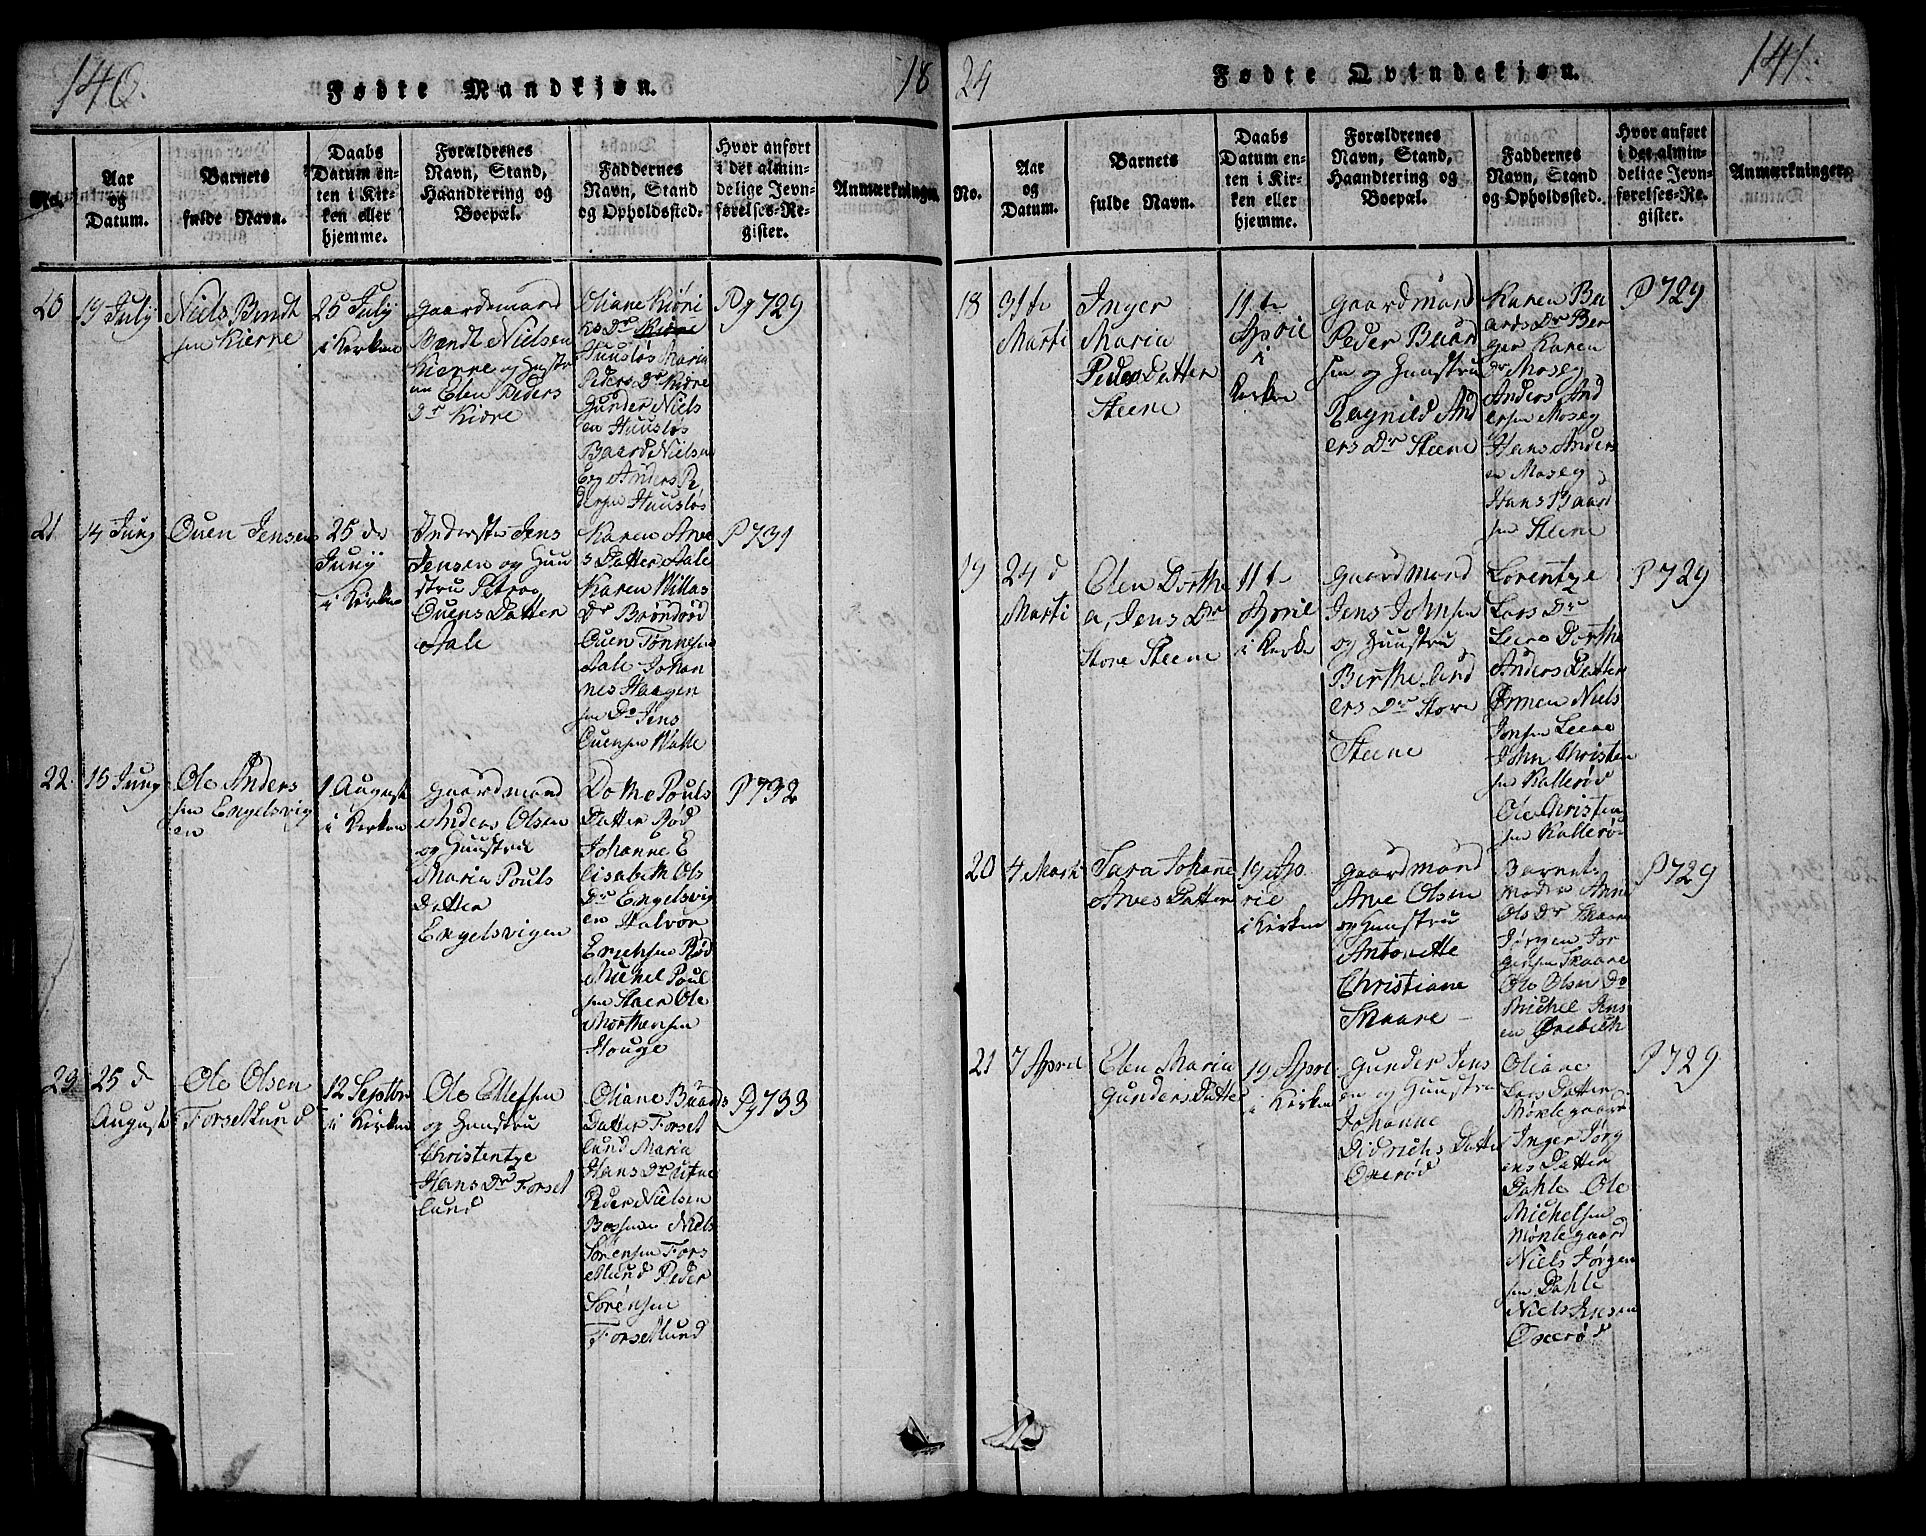 140.
Fødte Mandkjøn.
18
No.
Aar
og
Datum.
Barnets
fulde Navn.
Daabs
Datum en-
ten i Kir-
ken eller
hjemme.
Forældrenes
Navn, Stand,
Haandtering og
Boepæl.
Faddernes
Navn, Stand
og Opholdssted.
Hvor anført
i det almin-
delige Jevn-
førelses-Re-
gister.
Anmærkninger.
20
19 July
Niels Bendt
sen Kierre
25 July
i Kirken
Gaardmand
Bendt Nielsen
Kierre og Hustr
Elen Peders
Dr Kiøre
Oliane Kiøri
Dr
Huusløs Maria
Peders Dr Kiøre
Gunder Niels
en Huusløs
Baard Nielsen
Eeg Anders Pe
dersen Huusløs
Pg 729
21
14 Juny
Ouen Jensen
25 de
Juny
i Kirken
Inderste Jens
Jensen og Huu
stru
Ouens Datter
Aale
Karen Arve
s Datter Aale
Karen Willas
Dr Brøndrød
Ouen Tønnesen
Aale Johan
nes Haagen
sen Do Jens
Ouensen Walle
P 731
22
15 Juny
Ole Anders
sen Engelsvig
en
1 August
i Kirken
Gaardmand
Anders Olsen
og Huustrue
Maria Pouls
Datter
Engelsvigen
Dothe Pouls
Datter Rød
Johanne E
lisabeth Ols
Dr Engelsvig
en Halvor
Erichsen Rød
Michel Poul
sen Ole
Morthensen
Houge
P 732
23
25 d
August
Ole Olsen
Forsetlund
12 Septbr
i Kirken
Ole Ellefsen
og Huustru
Christentze
Hans Dr Forset
lund
Oliane Baards
Datter Forset
lund Maria
Hans Dr
Peder Nielsen
Niels
Sørensen Fors
etlund Peder
Sørensen
Forsetlund
Pg 733
24
Fødte Qvindekjøn.
141.
No.
Aar
og
Datum.
Barnets
fulde Navn.
Daabs
Datum en-
ten i Kir-
ken eller
hjemme.
Forældrenes
Navn, Stand,
Haandtering og
Boepæl.
Faddernes
Navn, Stand
og Opholdssted.
Hvor anført
i det almin-
delige Jevn-
førelses-Re-
gister.
Anmærkninger.
18
31te
Marti
Inger
Maria
Peders Datter
Steene
11te
Aprie
i
Kirken
Gaardmand
Peder Baard
sen og Huustru
Ragnild And
ers Dr Steene
Karen Ba
ards Dr Ber
ger Karen
Dr Moseg
Anders And
ersen Moseg
Hans Anders
en Moseg
Hans Baard
sen Steene
P 729
19
24 d
Marti
Elen Dorthe
a, Jens Dr
Store Steene
11te
Aprie
i Kirke
Gaardmand
Jens Johnsen
og Huustru
Birthe And
ers Dr Store
Steene
Lorentze
Lars Dr
Leere Dorthe
Anders Datter
Ørmen Niels
Jonsen Leere
John Christen
sen Kallerød
Ole Christen
sen Kallerø
P 729
20
4 Marti
Sara Johanne
Arves Datter
19 Ap
rie
i Kirken
Gaardmand
Arve Olsen
og Huustru
Antonette
Christiane
Skaare
Barnets
moder Anne
Ols Dr Skaare
Jørgen Jør
gensen Skaare
Ole Olsen Do
Michel Jens
en Ørebech
P 729
21
7 Aprel
Elen Maria
Gunders Datte
19 Apre
i Kirken
Gunder Jens
en og Huustru
Johanne
Didrichs Datte
Oxerød
Oliane
Lars Datter
Mørkegaard
Inger Jørg
ens Datter
Dahle Ole
Michelsen
Mørkegaard
Niels Jørgen
sen Dahle
Niels Jensen
Oxerød
P 729